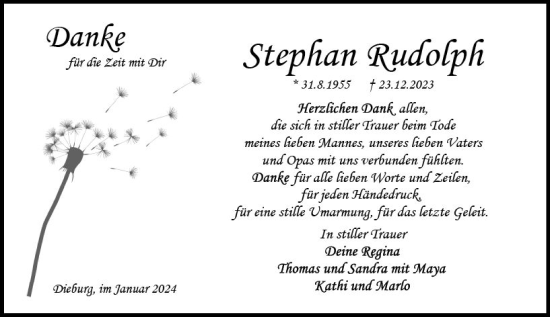 Danke
für die Zeit mit Dir
Stephan Rudolph
* 31.8.1955 † 23.12.2023
Herzlichen Dank allen,
die sich in stiller Trauer beim Tode
meines lieben Mannes, unseres lieben Vaters
und Opas mit uns verbunden fühlten.
Danke für alle lieben Worte und Zeilen,
für jeden Händedruck,
für eine stille Umarmung, für das letzte Geleit.
In stiller Trauer
Deine Regina
Thomas und Sandra mit Maya
Kathi und Marlo
Dieburg, im Januar 2024